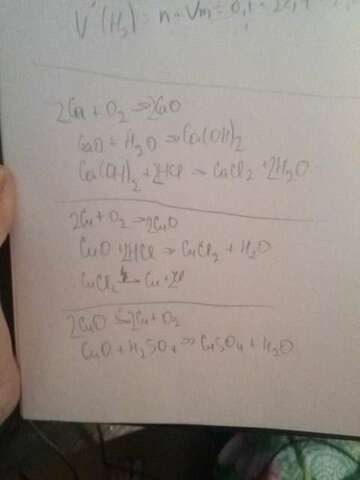 V(H₂) = n · Vm = 0,1 · 22,4 =
2Ca + O₂ ⇒ 2CaO
CaO + H₂O ⇒ Ca(OH)₂
Ca(OH)₂ + 2HCl ⇒ CaCl₂ + 2H₂O
2Cu + O₂ ⇒ 2CuO
CuO + 2HCl ⇒ CuCl₂ + H₂O
CuCl₂ → Cu +
2CuO 2Cu + O₂
CuO + H₂SO₄ ⇒ CuSO₄ + H₂O